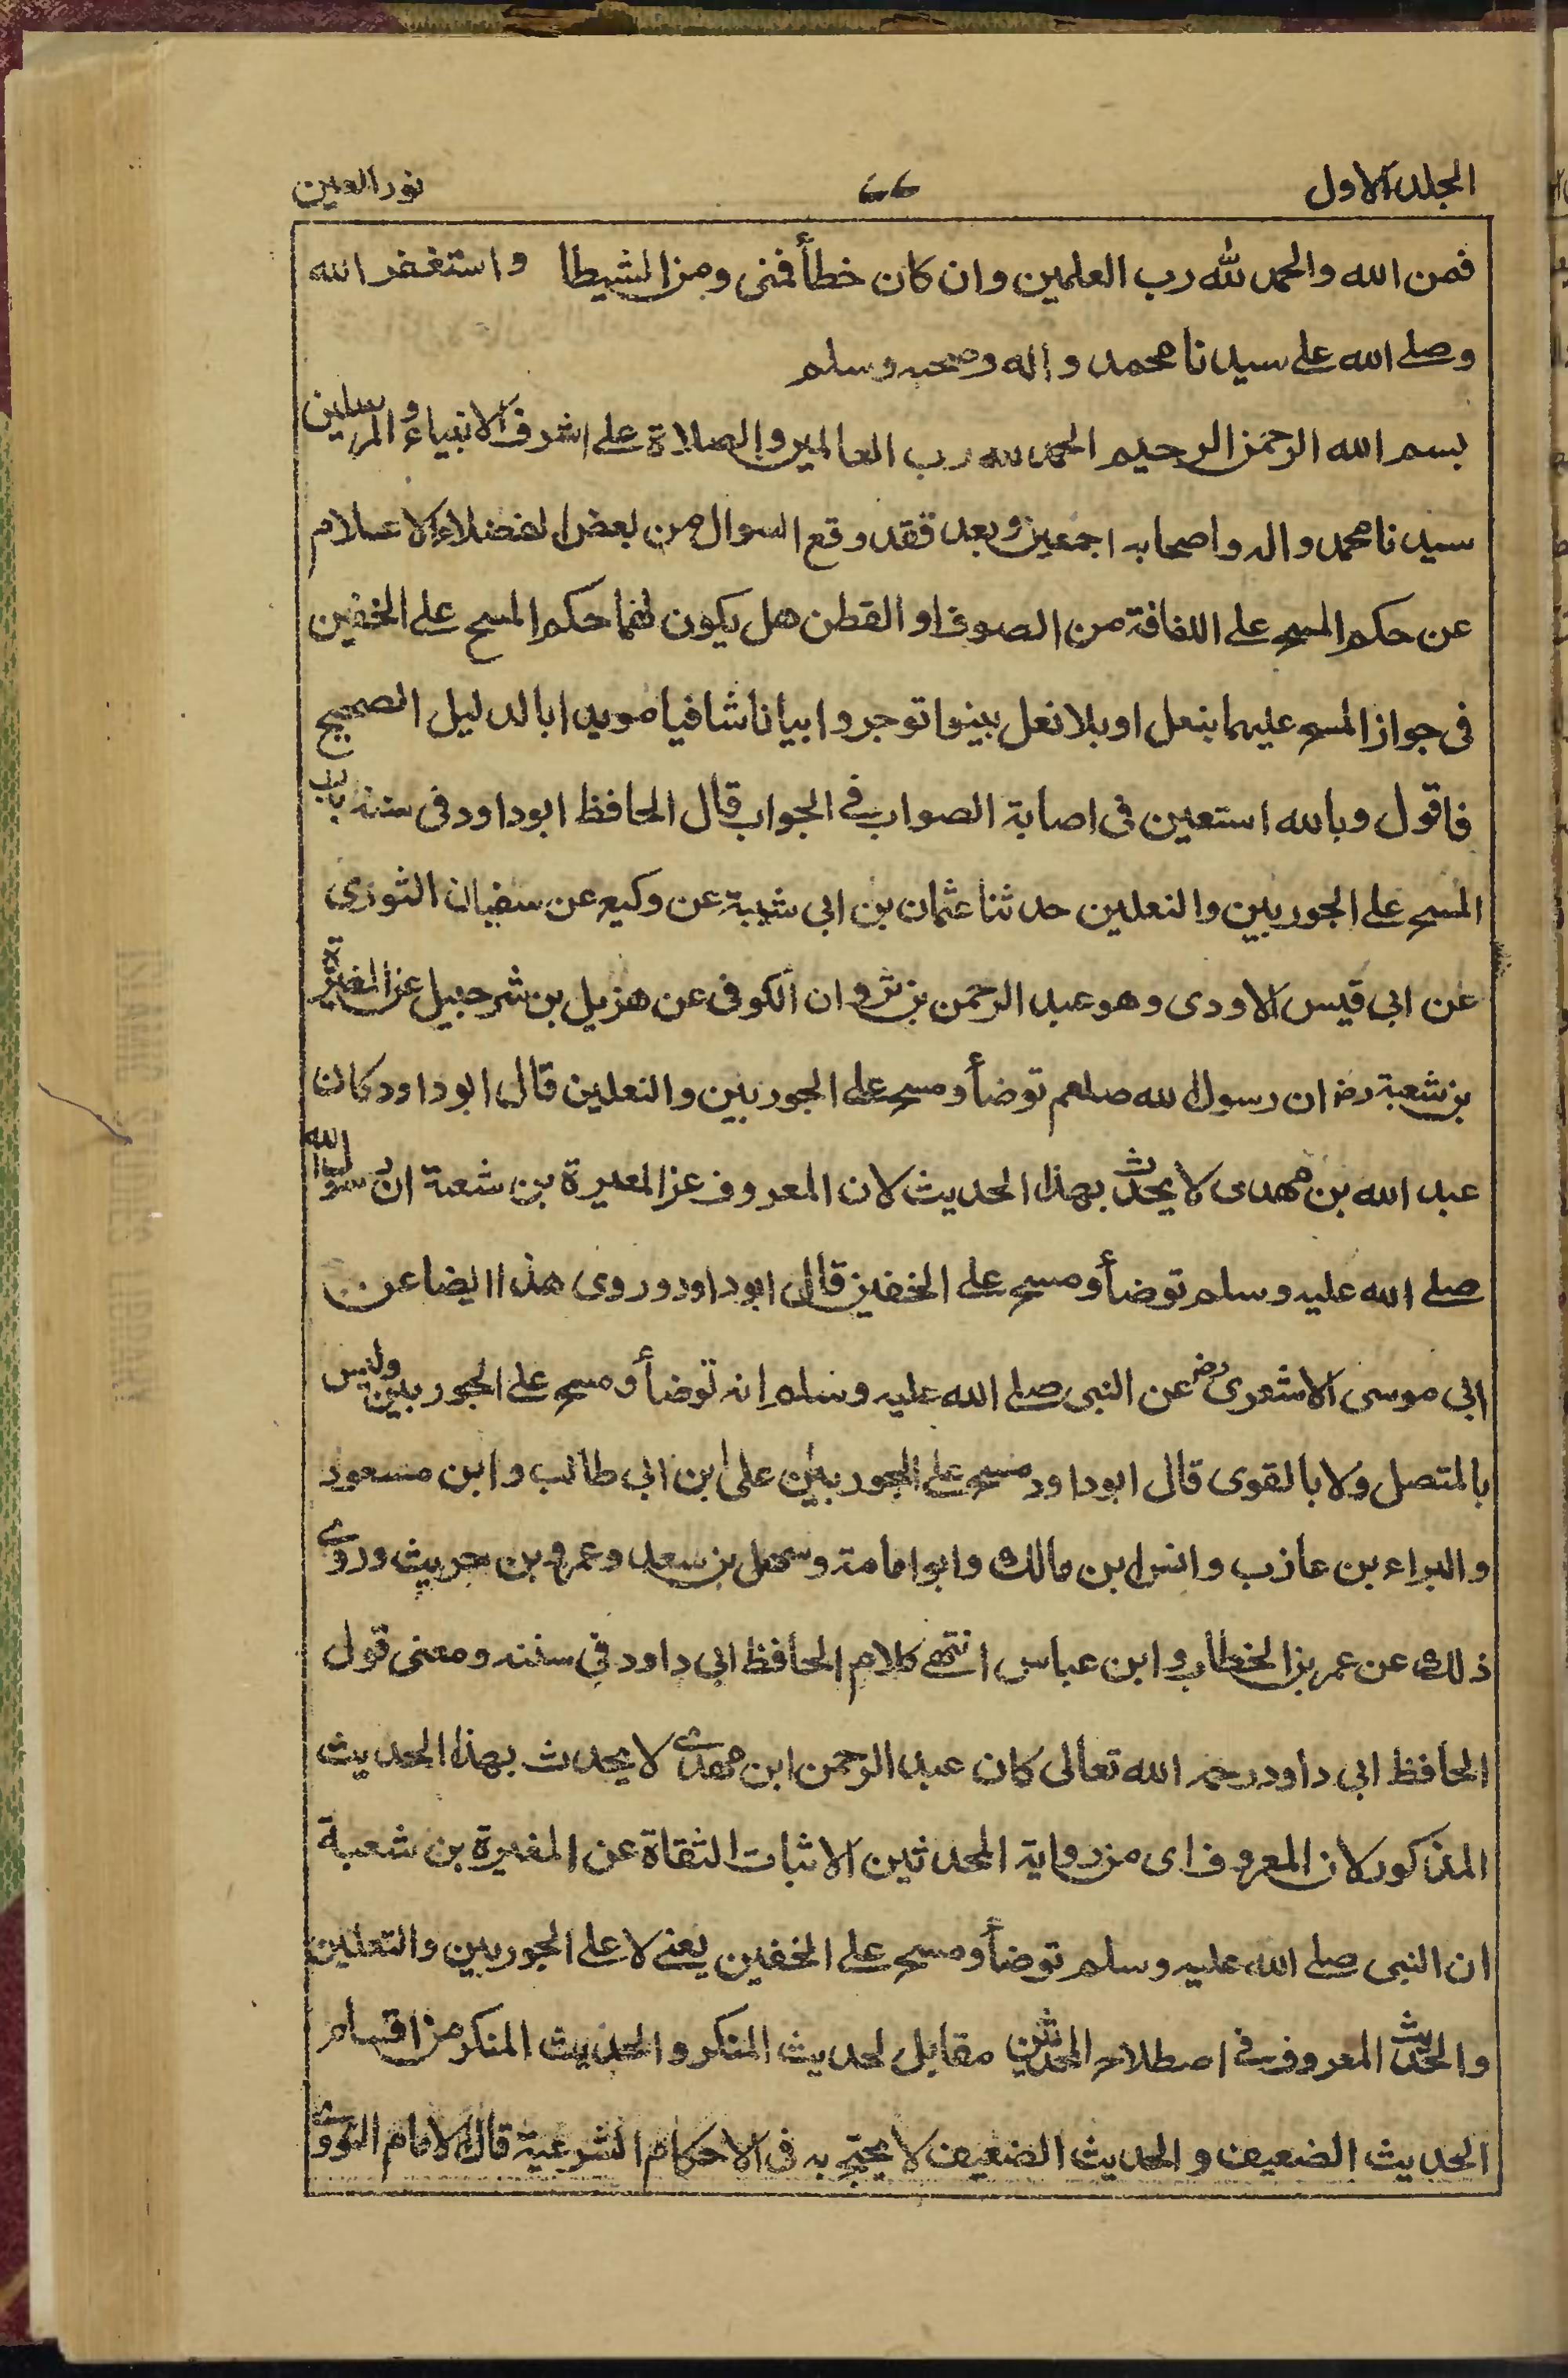 المجلد الاول ٤٤ نور العين
فمن الله والحمد لله رب العلمين وان كان خطأ فمنى ومن الشيطا واستغفر الله
وصلى الله على سيدنا محمد واله وصحبه وسلم
بسم الله الرحمن الرحيم الحمد لله رب العالمين والصلاة على اشرف الانبياء والمرسلين
سيدنا محمد واله واصحابه اجمعين وبعد فقد وقع السوال من بعض الفضلاء الاعلام
عن حكم المسح على اللفافة من الصوف او القطن هل يكون لهما حكم المسح على الخفين
فى جواز المسح عليهما بنعل او بلا نعل بينوا توجروا بيانا شافيا مويدا بالدليل الصحيح
فاقول وبالله استعين فى اصابة الصواب فى الجواب قال الحافظ ابوداود فى سننه باب
المسح على الجوربين والنعلين حدثنا عثمان بن ابى شيبة عن وكيع عن سفيان الثورى
عن ابى قيس الاودى وهو عبد الرحمن بن ثروان الكوفى عن هزيل بن شرحبيل عن المغيرة
بن شعبة رض ان رسول الله صلعم توضأ ومسح على الجوربين والنعلين قال ابو داود كان
عبد الله بن مهدى لا يحدث بهذا الحديث لان المعروف عن المغيرة بن شعبة ان رسول الله
صلى الله عليه وسلم توضأ ومسح على الخفين قال ابو داود وروى هذا ايضا عن
ابى موسى الاشعرى رض عن النبى صلى الله عليه وسلم انه توضأ ومسح على الجوربين وليس
بالمتصل ولا بالقوى قال ابوداود مسح على الجوربين على ابن ابى طالب وابن مسعود
والبراء بن عازب وانس ابن مالك وابو امامة وسهل بن سعد وعمرو بن حريث وروى
ذلك عن عمر بن الخطاب وابن عباس انتهى كلام الحافظ ابى داود فى سننه ومعنى قول
الحافظ ابى داود رحمه الله تعالى كان عبد الرحمن ابن مهدى لا يحدث بهذا الحديث
المذكور لان المعروف اى من رواية المحدثين الاثبات الثقاة عن المغيرة بن شعبة
ان النبى صلى الله عليه وسلم توضأ ومسح على الخفين يعنى لا على الجوربين والنعلين
والحديث المعروف فى اصطلاح المحدثين مقابل لحديث المنكر والحديث المنكر من اقسام
الحديث الضعيف والحديث الضعيف لا يحتج به فى الاحكام الشرعية قال الامام النووى